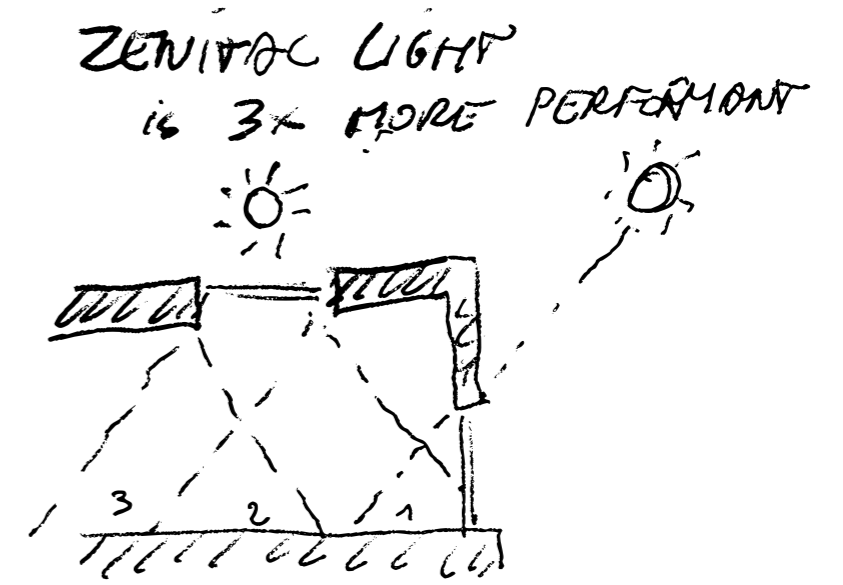 ZENITAL LIGHT
is 3x MORE PERFORMANT
3 2 1